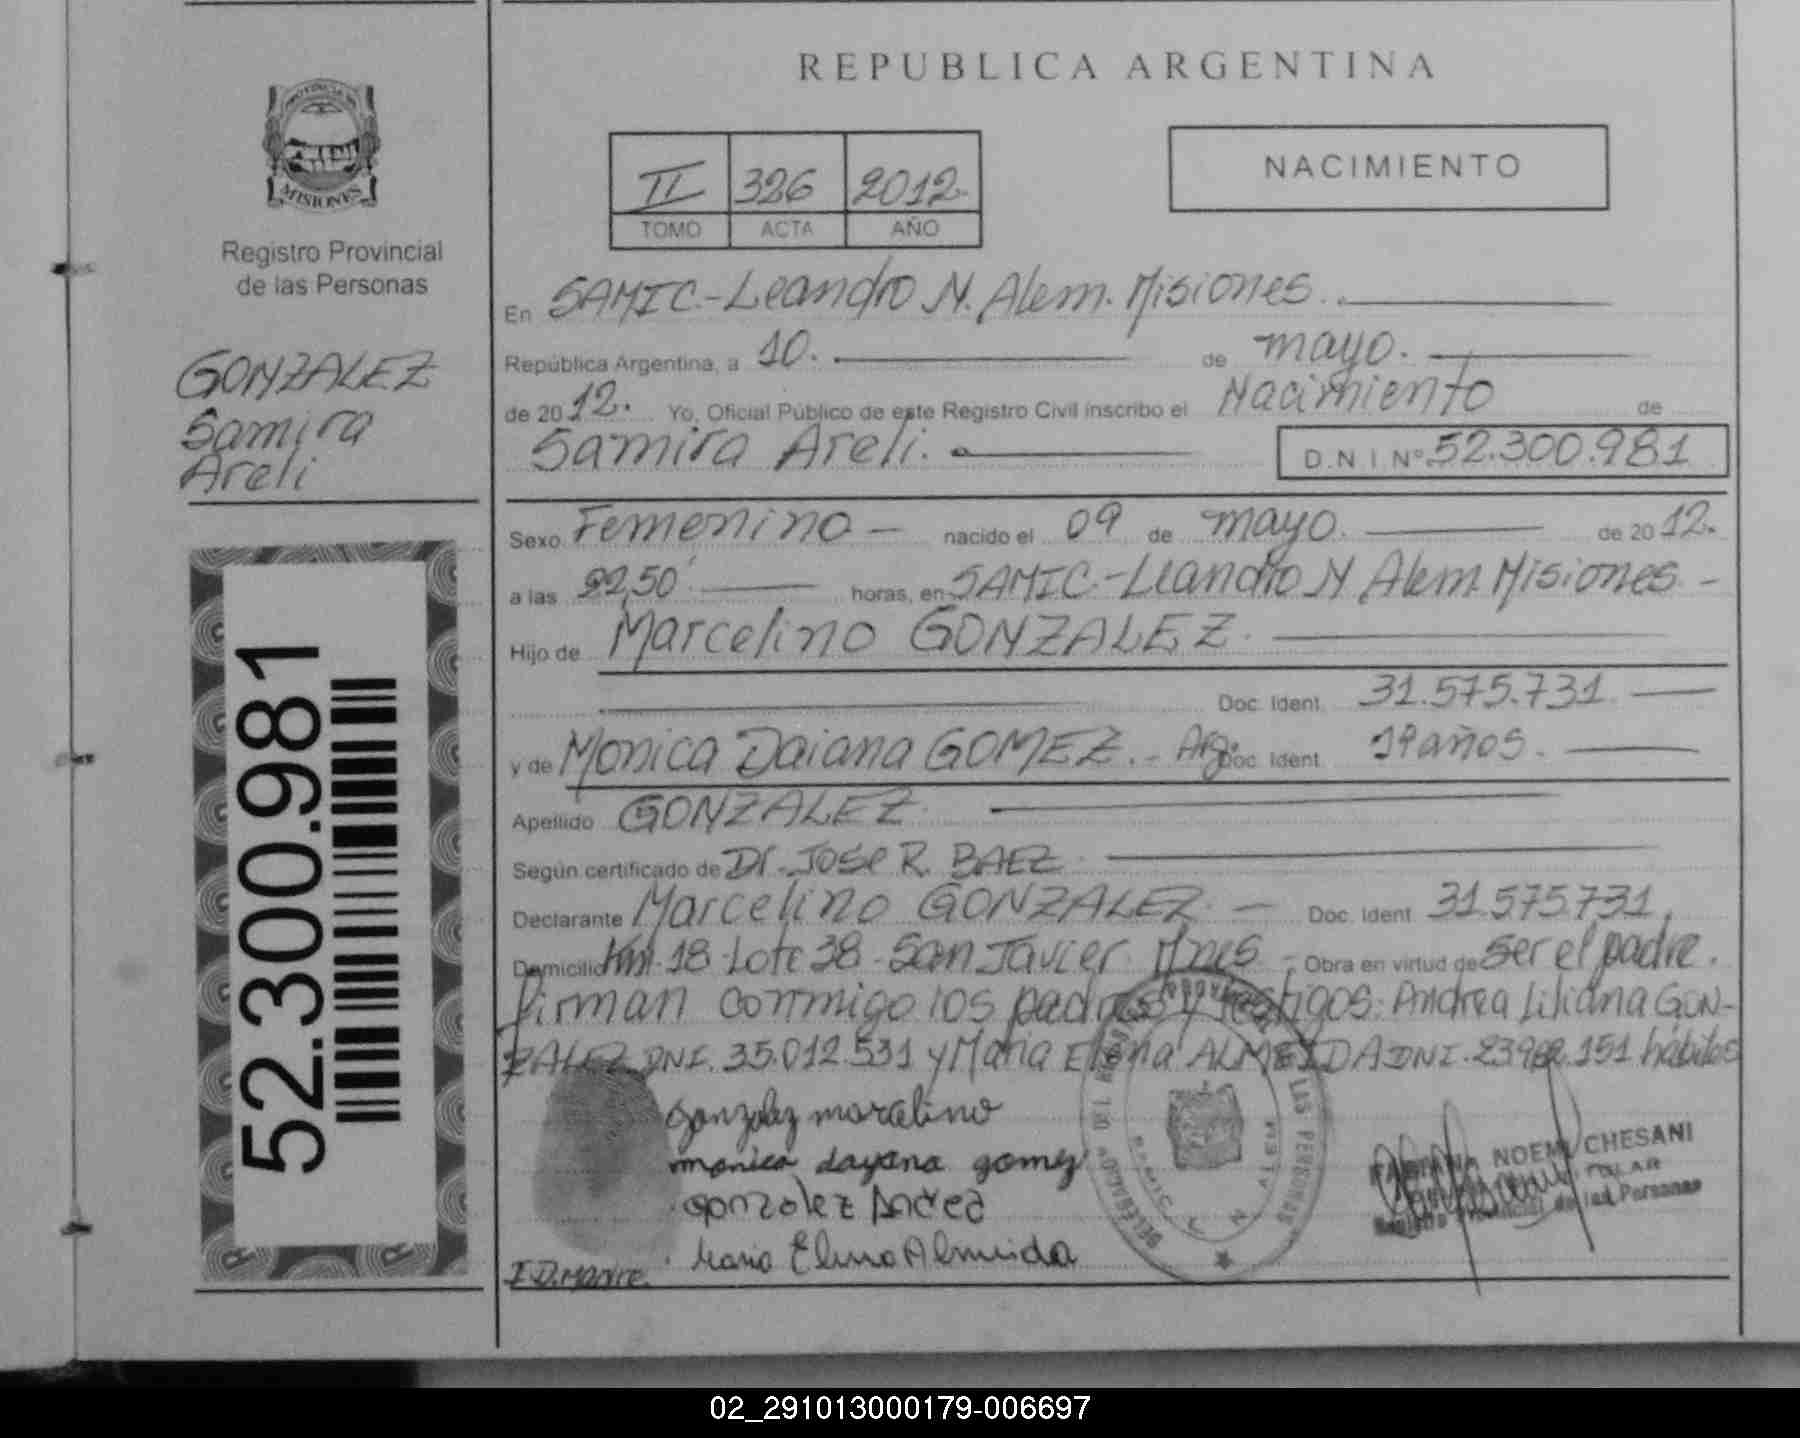 REPUBLICA ARGENTINA
PROVINCIA DE
MISIONES
Registro Provincial
de las Personas
GONZALEZ
Samira
Areli
52.300.981
II 326 2012.
TOMO ACTA AÑO
NACIMIENTO
En SAMIC.-Leandro N. Alem. Misiones.
República Argentina, a 10. de mayo.
de 2012. Yo, Oficial Público de este Registro Civil inscribo el Nacimiento de
Samira Areli.
D.N.I. Nº 52.300.981
Sexo Femenino - nacido el 09 de mayo. de 2012.
a las 22,50' horas, en SAMIC.-Leandro N Alem. Misiones -
Hijo de Marcelino GONZALEZ.
Doc. Ident. 31.575.731
y de Monica Daiana GOMEZ.- Arg. Doc. Ident. 19 años.
Apellido GONZALEZ.
Según certificado de Dr. JOSE R. BAEZ.
Declarante Marcelino GONZALEZ. - Doc. Ident. 31.575.731.
Domicilio Km. 18 - Lote 38 - San Javier. Mnes - Obra en virtud de ser el padre.
firman conmigo los padres y testigos: Andrea Liliana GON-
ZALEZ DNI. 35.012.531 y Maria Elena ALMEIDA DNI. hábiles
gonzalez marcelino
monica dayana gomez
Gonzalez Andrea
Maria Elena Almeida
I.D. Madre.
NOEMI CHESANI
Registro Provincial de las Personas
LAS PERSONAS
DELEGACION
02_291013000179-006697